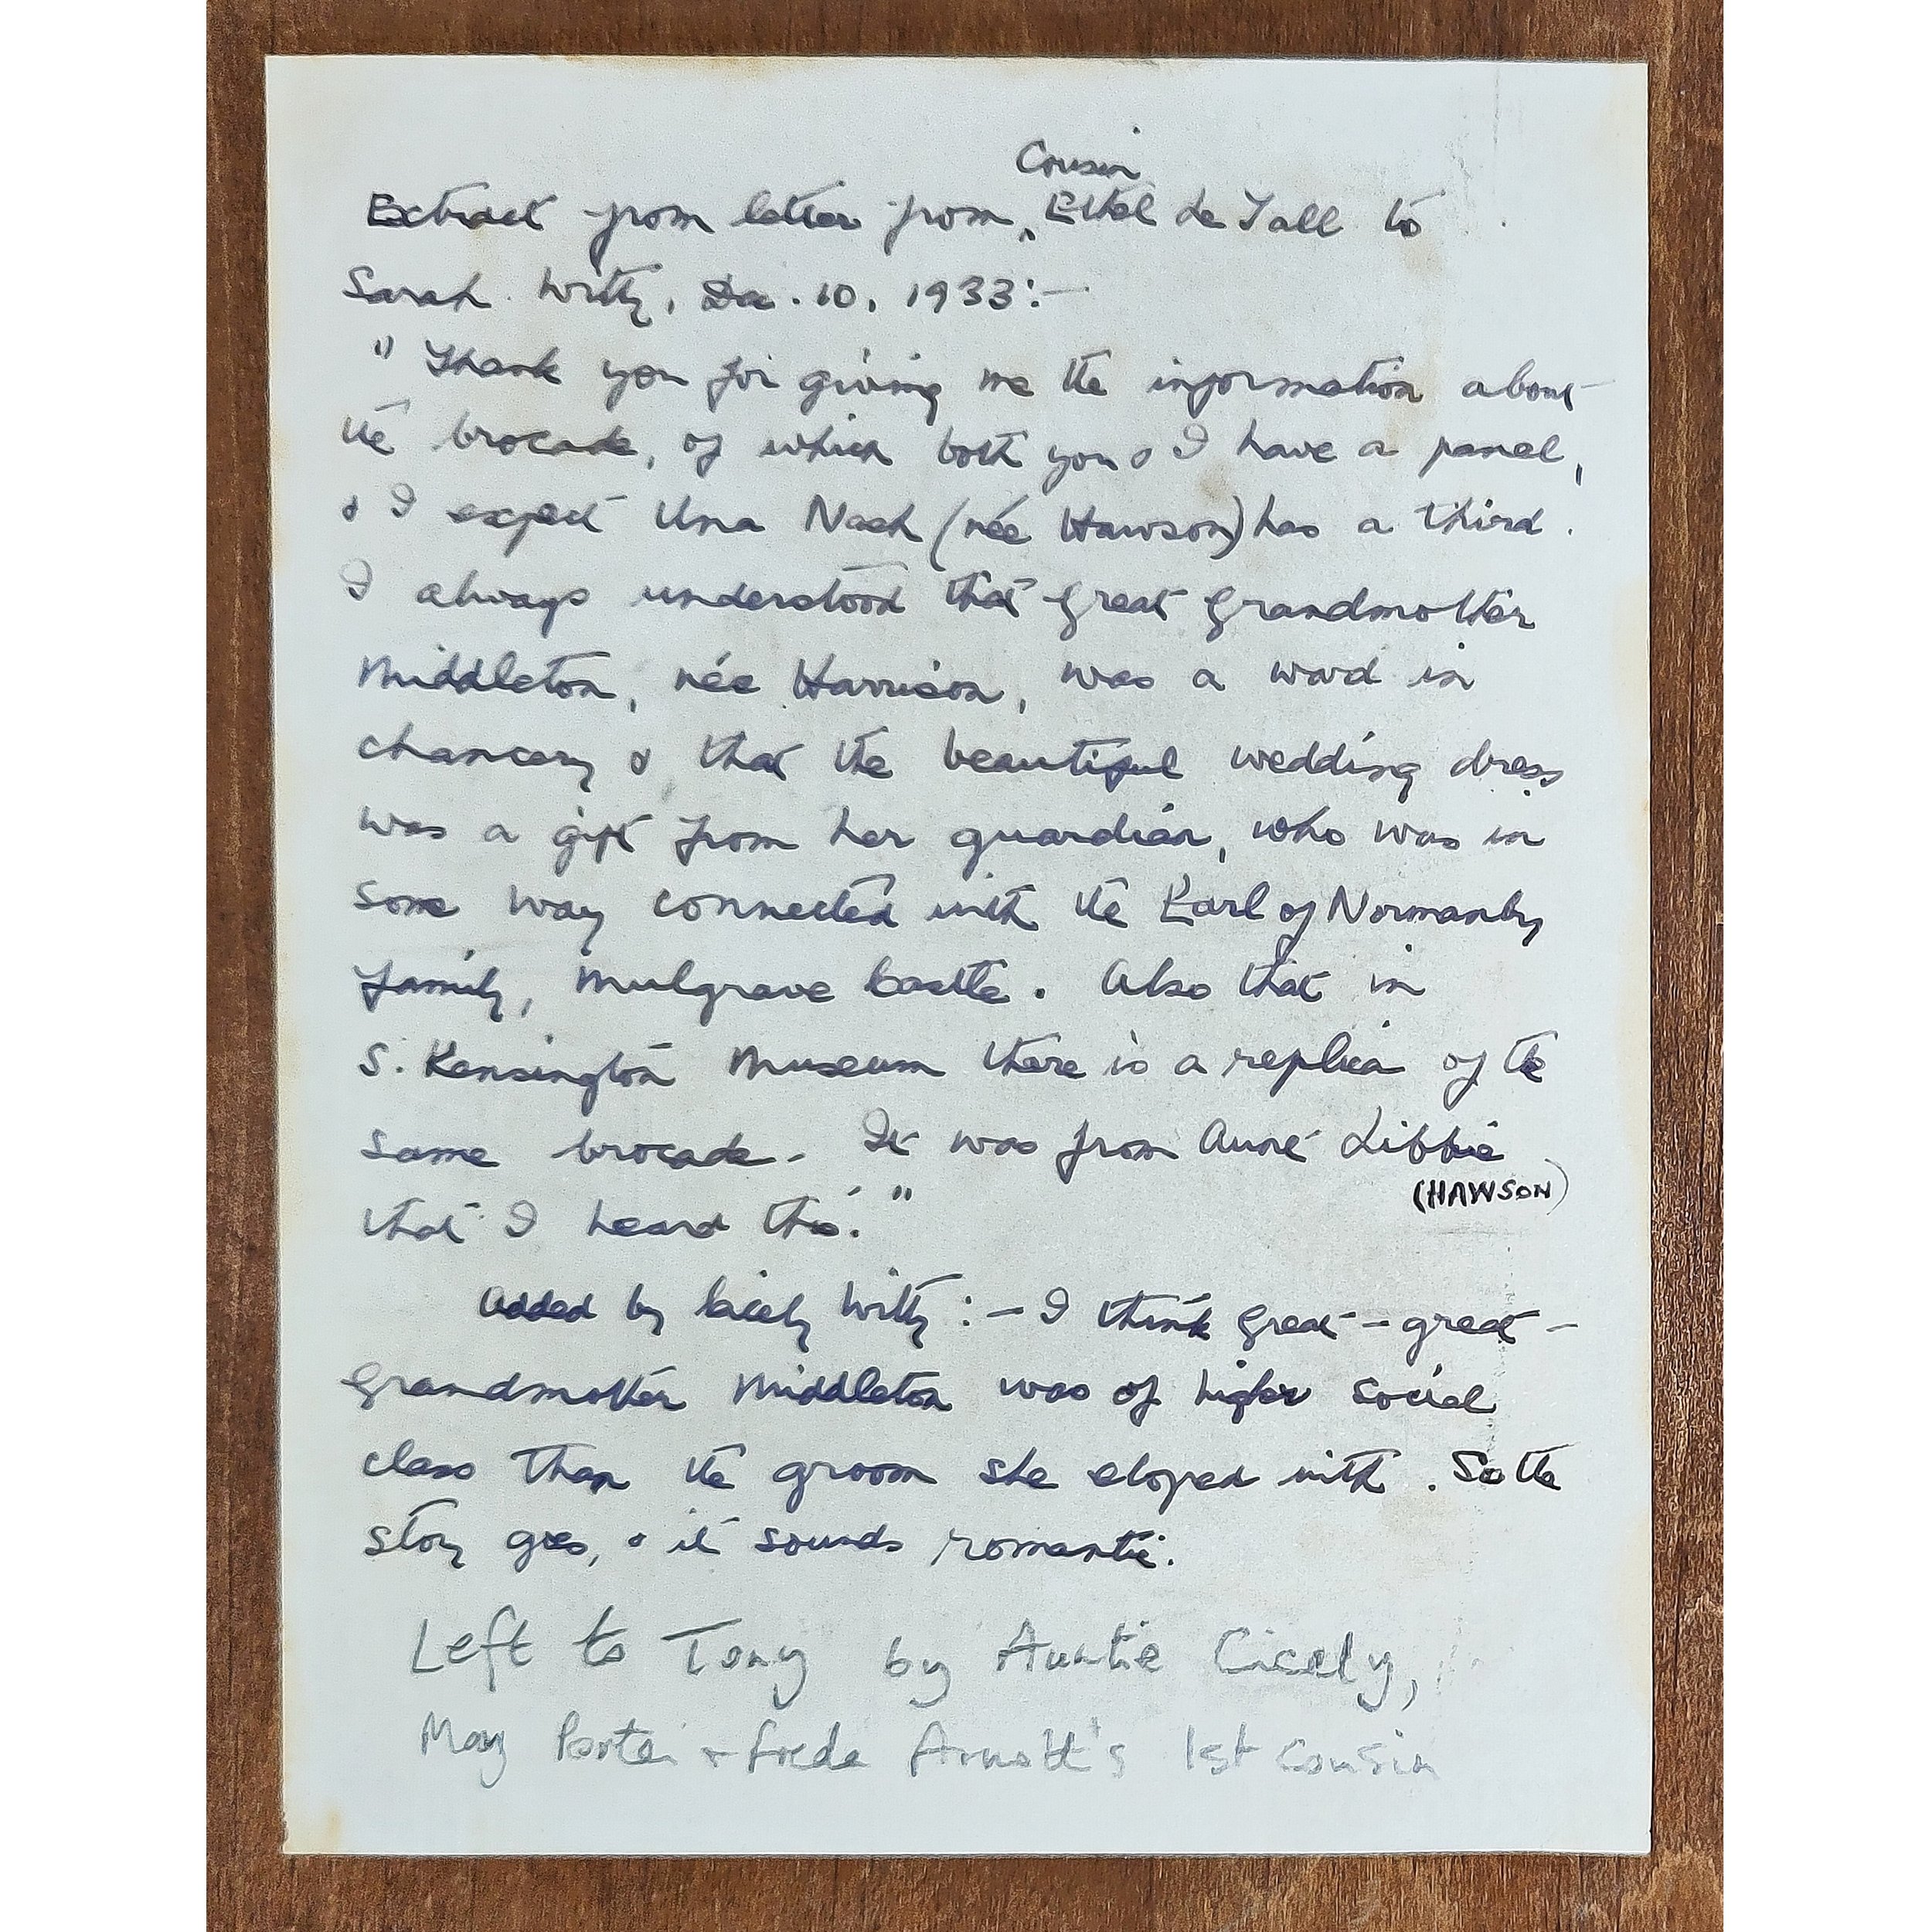 Cousin
Extract from letter from, Ethel Le Tall to
Sarah Witty, Dec. 10. 1933:-
"Thank you for giving me the information about
the brocade, of which both you & I have a panel,
& I expect Una Nash (née Hawson) has a third.
I always understood that Great Grandmother
Middleton, née Harrison, was a ward in
chancery & that the beautiful wedding dress
was a gift from her guardian, who was in
some way connected with the Earl of Normanby
family, Mulgrave Castle. Also that in
S. Kensington Museum there is a replica of the
same brocade. It was from Aunt Libbie
(HAWSON)
that I heard this."
Added by Cicely Witty:- I think Great-great-
Grandmother Middleton was of higher social
class than the groom she eloped with. So the
story goes, & it sounds romantic.
Left to Tony by Auntie Cicely,
May Porter + Freda Arnott's 1st cousin